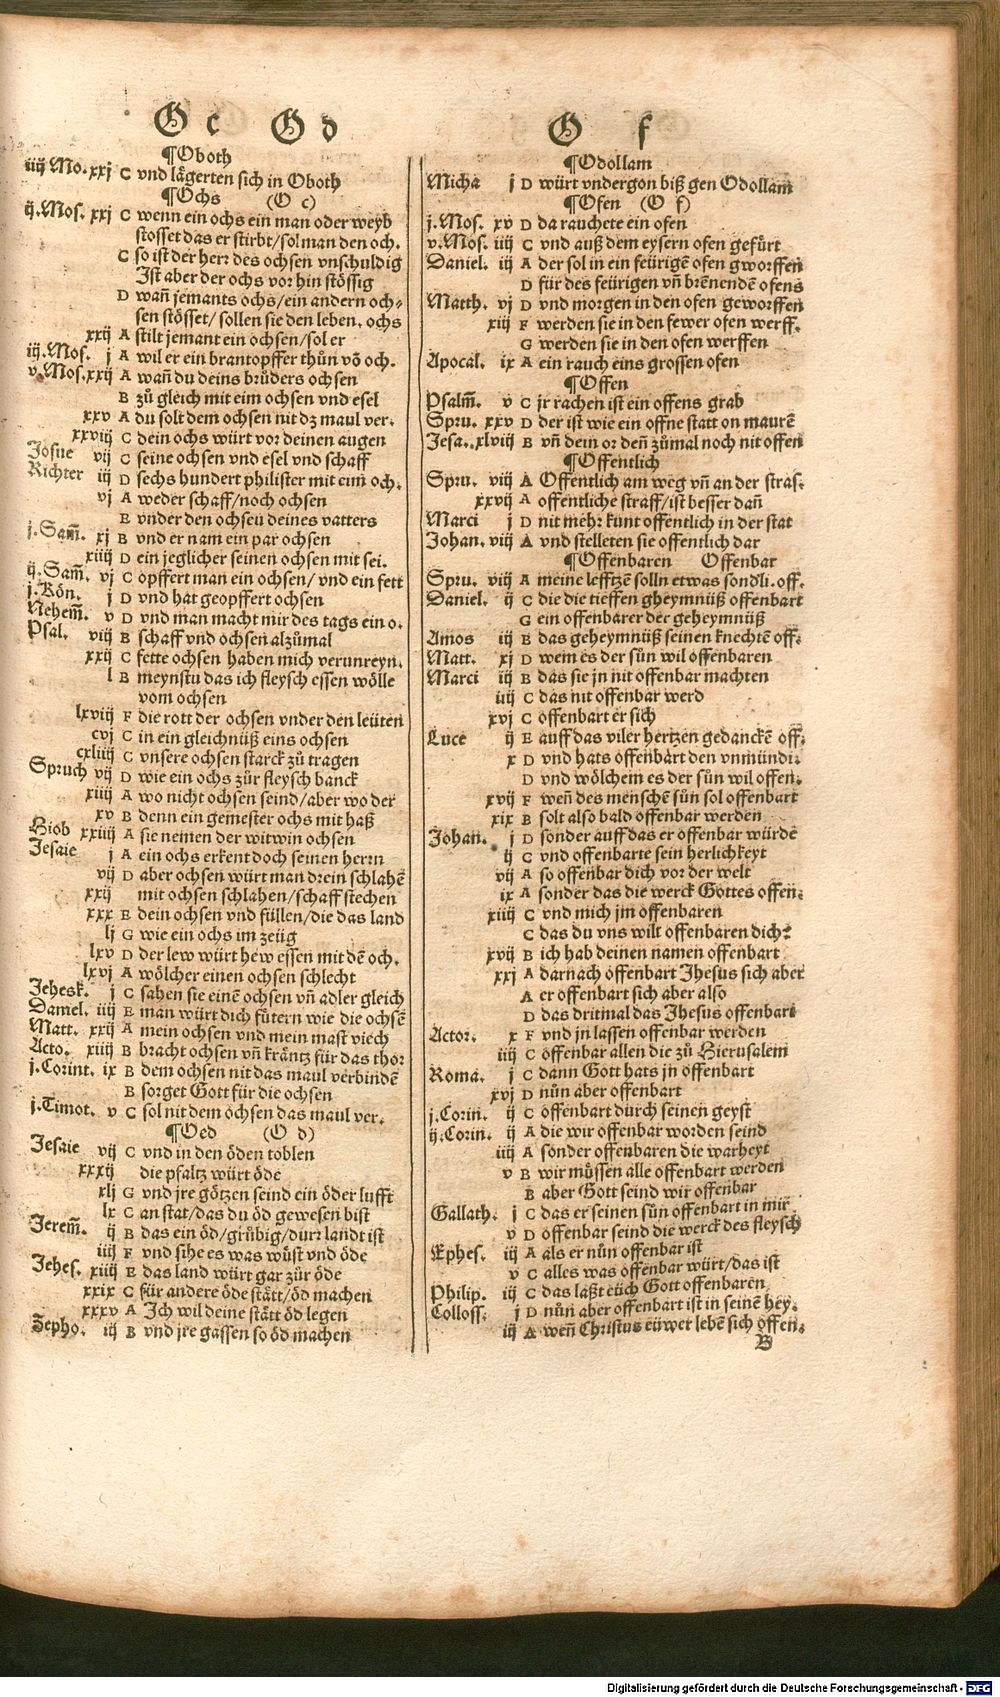 O c O d
¶Oboth
iiij Mo. xxj C vnd lägerten sich in Oboth
¶Ochs (O c)
ij.Mos. xxj C wenn ein ochs ein man oder weyb
stosset das er stirbt/sol man den och.
C so ist der herr des ochsen vnschuldig
Ist aber der ochs vor hin stössig
D wañ jemants ochs/ein andern och⸗
sen stösset/ sollen sie den leben. ochs
xxij A stilt jemant ein ochsen/sol er
iij.Mos. j A wil er ein brantopffer thůn võ och.
v.Mos. xxij A wañ du deins brůders ochsen
B zů gleich mit eim ochsen vnd esel
xxv A du solt dem ochsen nit dz maul ver.
xxviij C dein ochs würt vor deinen augen
Josue vij C seine ochsen vnd esel vnd schaff
Richter iij D sechs hundert philister mit eim och.
vj A weder schaff/noch ochsen
E vnder den ochsen deines vatters
j.Sam̃. xj B vnd er nam ein par ochsen
xiiij D ein jeglicher seinen ochsen mit sei.
ij.Sam̃. vj C opffert man ein ochsen/ vnd ein fett
j.Kön. j D vnd hat geopffert ochsen
Nehem̃. v D vnd man macht mir des tags ein o.
Psal. viij B schaff vnd ochsen alzůmal
xxij C fette ochsen haben mich verunreyn.
l B meynstu das ich fleysch essen wölle
vom ochsen
lxviij F die rott der ochsen vnder den leüten
cvj C in ein gleichnüß eins ochsen
cxliiij C vnsere ochsen starck zů tragen
Spruch vij D wie ein ochs zůr fleysch banck
xiiij A wo nicht ochsen seind/aber wo der
xv B denn ein gemester ochs mit haß
Hiob xxiiij A sie nemen der witwin ochsen
Jesaie j A ein ochs erkent doch seinen herrn
vij D aber ochsen würt man drein schlahē
xxij mit ochsen schlahen/schaff stechen
xxx E dein ochsen vnd füllen/die das land
lj G wie ein ochs im zeüg
lxv D der lew würt hew essen mit dē och.
lxvj A wölcher einen ochsen schlecht
Jehesk. j C sahen sie einē ochsen vñ adler gleich
Daniel. iiij E man würt dich fůtern wie die ochsē
Matt. xxij A mein ochsen vnd mein mast viech
Acto. xiiij B bracht ochsen vñ kräntz für das thor
j.Corint. ix B dem ochsen nit das maul verbindē
B sorget Gott für die ochsen
j.Timot. v C sol nit dem öchsen das maul ver.
¶Oed (O d)
Jesaie vij C vnd in den öden toblen
xxxij die pfaltz würt öde
xlj G vnd jre götzen seind ein öder lufft
lx C an stat/das du öd gewesen bist
Jerem̃. ij B das ein öd/grůbig/durr landt ist
iiij F vnd sihe es was wůst vnd öde
Jehes. xiiij E das land würt gar zůr öde
xxix C für andere öde stätt/öd machen
xxxv A Ich wil deine stätt öd legen
Zepho. iij B vnd jre gassen so öd machen
O f
¶Odollam
Micha j D würt vndergon biß gen Odollam
¶Ofen (O f)
j.Mos. xv D da rauchete ein ofen
v.Mos. iiij C vnd auß dem eysern ofen gefůrt
Daniel. iij A der sol in ein feürigē ofen gworffen
D für des feürigen vñ brēnendē ofens
Matth. vj D vnd morgen in den ofen geworffen
xiij F werden sie in den fewer ofen werff.
G werden sie in den ofen werffen
Apocal. ix A ein rauch eins grossen ofen
¶Offen
Psalm̃. v C jr rachen ist ein offens grab
Spru. xxv D der ist wie ein offne statt on maurē
Jesa. xlviij B vñ dein or deñ zůmal noch nit offen
¶Offentlich
Spru. viij A Offentlich am weg vñ an der stras.
xxvij A offentliche straff/ist besser dañ
Marci j D nit mehr kunt offentlich in der stat
Johan. viij A vnd stelleten sie offentlich dar
¶Offenbaren Offenbar
Spru. viij A meine lefftzē solln etwas sondli. off.
Daniel. ij C die die tieffen gheymnüß offenbart
G ein offenbarer der geheymnüß
Amos iij B das geheymnüß seinen knechtē off.
Matt. xj D wem es der sůn wil offenbaren
Marci iij B das sie jn nit offenbar machten
iiij C das nit offenbar werd
xvj C offenbart er sich
Luce ij E auff das viler hertzen gedanckē off.
x D vnd hats offenbart den vnmündi.
D vnd wölchem es der sůn wil offen.
xvij F weñ des menschē sůn sol offenbart
xix B solt also bald offenbar werden
Johan. j D sonder auff das er offenbar würdē
ij C vnd offenbarte sein herlichkeyt
vij A so offenbar dich vor der welt
ix A sonder das die werck Gottes offen.
xiiij C vnd mich jm offenbaren
C das du vns wilt offenbaren dich?
xvij B ich hab deinen namen offenbart
xxj A darnach offenbart Jhesus sich aber
A er offenbart sich aber also
D das dritmal das Jhesus offenbart
Actor. x F vnd jn lassen offenbar werden
iiij C offenbar allen die zů Hierusalem
Roma. j C dann Gott hats jn offenbart
xvj D nůn aber offenbart
j.Corin. ij C offenbart durch seinen geyst
ij.Corin. ij A die wir offenbar worden seind
iiij A sonder offenbaren die warheyt
v B wir můssen alle offenbart werden
B aber Gott seind wir offenbar
Gallath. j C das er seinen sůn offenbart in mir
v D offenbar seind die werck des fleysch
Ephes. iij A als er nůn offenbar ist
v C alles was offenbar würt/das ist
Philip. iij C das laßt eüch Gott offenbaren
Colloss. j D nůn aber offenbart ist in seinē hey.
iij A weñ Christus eüwer lebē sich offen.
B
Digitalisierung gefördert durch die Deutsche Forschungsgemeinschaft - DFG